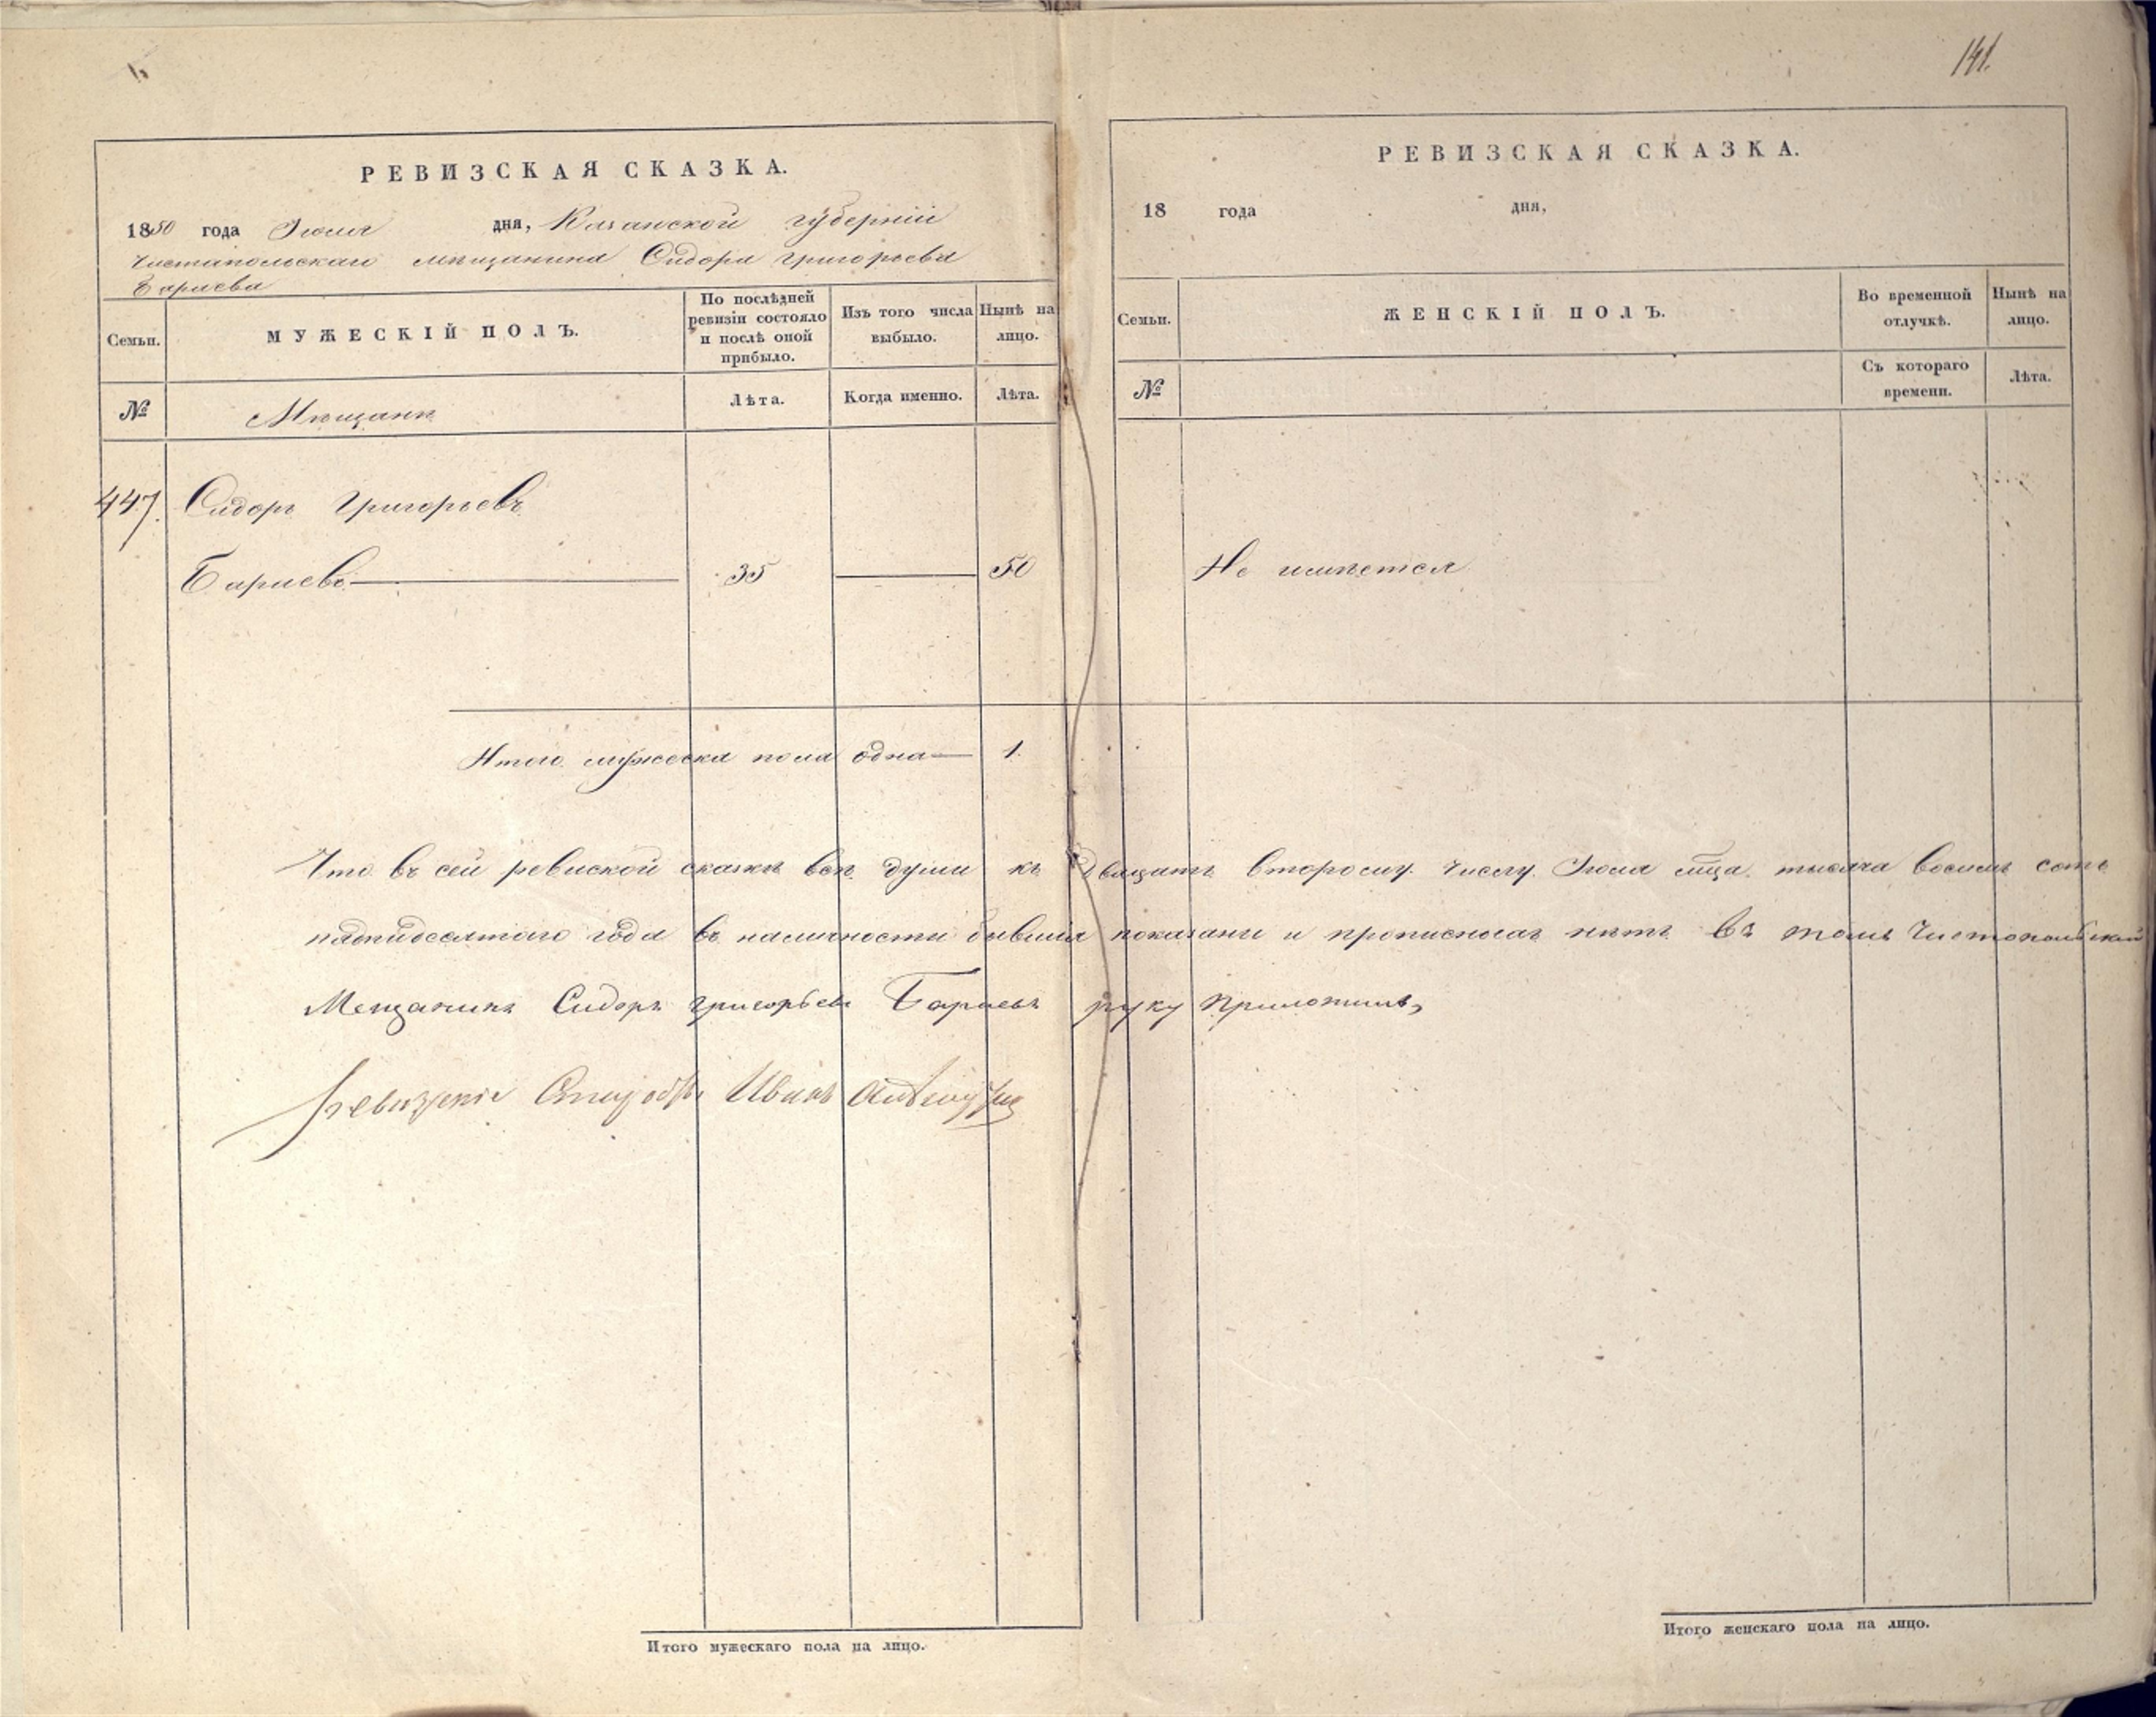 141.
РЕВИЗСКАЯ СКАЗКА.
1850 года Июля дня, Казанской губерніи
Чистапольскаго мѣщанина Сидора Григорьева
Бариева
Семьи.
МУЖЕСКІЙ ПОЛЪ.
По послѣдней ревизіи состояло и послѣ оной прибыло.
Изъ того числа выбыло.
Нынѣ на лицо.
№
Мѣщанъ
Лѣта.
Когда именно.
Лѣта.
447. Сидоръ Григорьевъ
Бариевъ — 35 — 50
Итого мужеска пола одна — 1.
РЕВИЗСКАЯ СКАЗКА.
18 года дня,
Семьи.
ЖЕНСКІЙ ПОЛЪ.
Во временной отлучкѣ.
Нынѣ на лицо.
№
Съ котораго времени.
Лѣта.
Не имѣется
Что въ сей ревиской сказкѣ всѣ души къ двацать второму числу Июля мца тысяча восемь сотъ
пядидесятаго года въ наличности бывшия показаны и прописныхъ нѣтъ въ томъ Чистопольский
Мещанинъ Сидоръ григорьевъ Бариевъ руку приложилъ,
Иванъ
Итого мужескаго пола на лицо.
Итого женскаго пола на лицо.